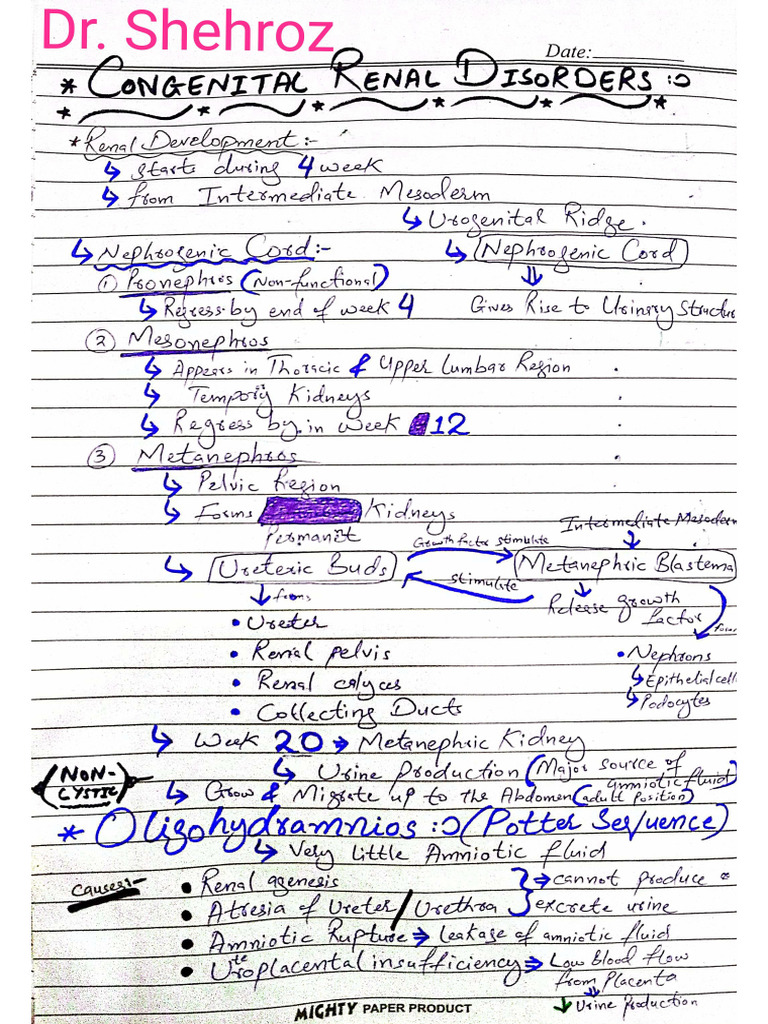 Dr. Shehroz
Date:
* CONGENITAL RENAL DISORDERS :-
* Renal Development:-
↳ starts during 4 week
↳ from Intermediate Mesoderm
↳ Urogenital Ridge.
↳ Nephrogenic Cord:- ↳ Nephrogenic Cord
① Pronephros (Non-functional) ⇓
↳ Regress by end of week 4 Gives Rise to Urinary Structur
② Mesonephros
↳ Appears in Thoracic & Upper Lumbar Region
↳ Tempory Kidneys
↳ Regress by in week 12
③ Metanephros
↳ Pelvic Region
↳ Forms Kidneys
Permanit
Intermediate Mesoderm
Growth factor stimulate
↳ Ureteric Buds Metanephric Blastema
stimulate
↓ forms Release growth factor
• Ureter form
• Renal pelvis • Nephrons
• Renal calyces ↳ Epithelial cell
• Collecting Ducts ↳ Podocytes
↳ Week 20 ⇒ Metanephric Kidney
↳ Urine Production (Major source of amniotic fluid)
(NON-CYSTIC)
↳ Grow & Migrate up to the Abdomen (adult position)
* Oligohydramnios :- (Potter Sequence)
↳ Very Little Amniotic fluid
Causes:-
• Renal agenesis } ⇒ cannot produce or
• Atresia of Ureter/Urethra } excrete urine
• Amniotic Rupture ⇒ Leakage of amniotic fluid
• Uteroplacental insufficiency ⇒ Low Blood flow
from Placenta
↳ Urine Production
MIGHTY PAPER PRODUCT